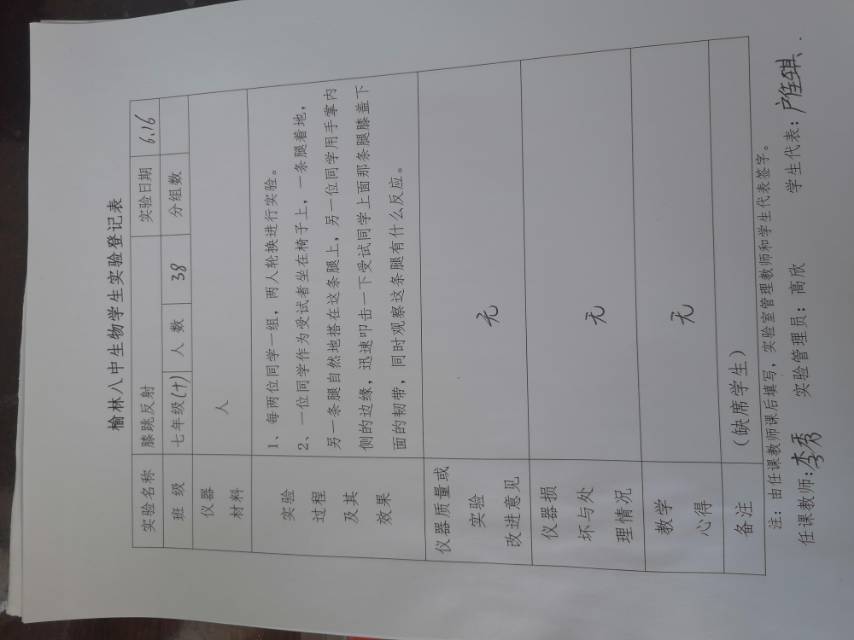 榆林八中生物学生实验登记表
实验名称 膝跳反射 实验日期 6.16
班 级 七年级(十) 人 数 38 分组数
仪器
材料
人
实验
过程
及其
效果
1、每两位同学一组，两人轮换进行实验。
2、一位同学作为受试者坐在椅子上，一条腿着地，
另一条腿自然地搭在这条腿上，另一位同学用手掌内
侧的边缘，迅速叩击一下受试同学上面那条腿膝盖下
面的韧带，同时观察这条腿有什么反应。
仪器质量或
实验
改进意见
无
仪器损
坏与处
理情况
无
教学
心得
无
备注 （缺席学生）
注：由任课教师课后填写，实验室管理教师和学生代表签字。
任课教师:李秀 实验管理员：高欣 学生代表：